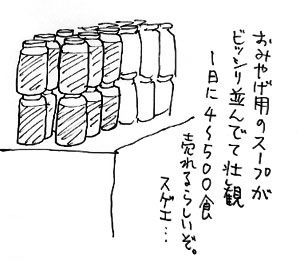 おみやげ用のスープが
ビッシリ並んでて壮観
1日に4〜500食
売れるらしいぞ。
スゲエ…